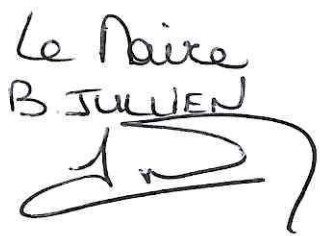 Le Maire
B. JULLIEN